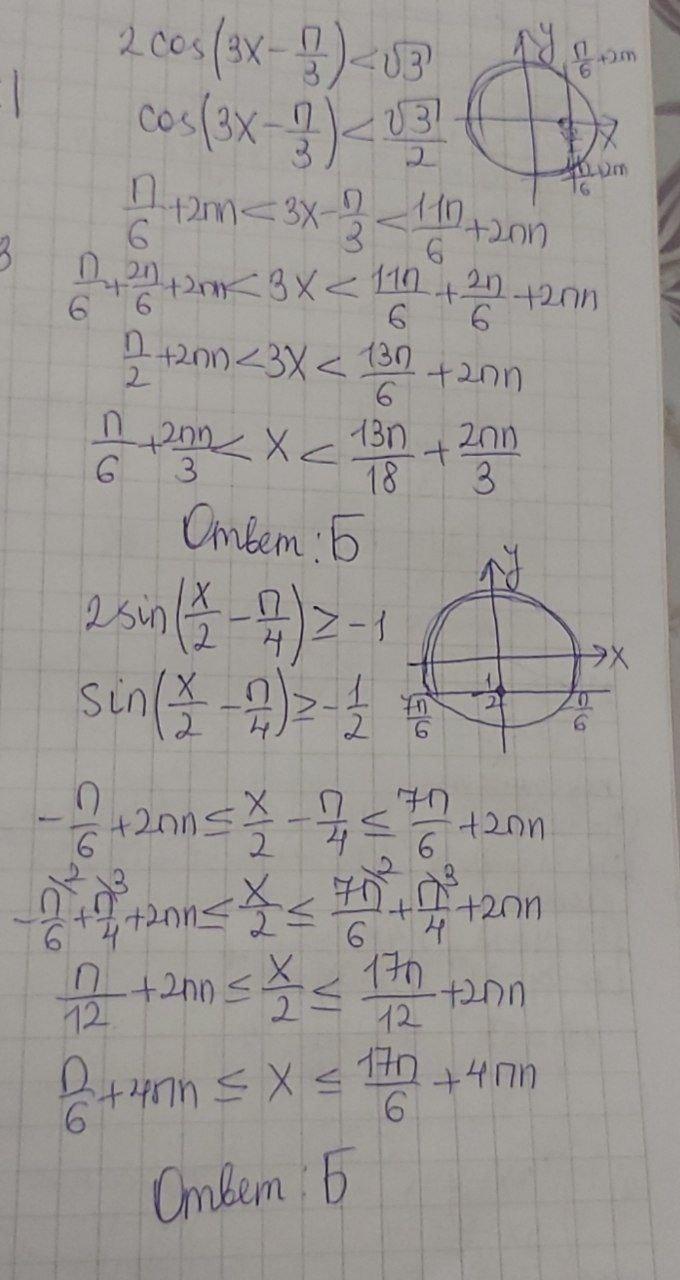 2cos(3x - π/3) < √3
cos(3x - π/3) < √3/2
y
π/6 + 2πn
x
π/6 + 2πn < 3x - π/3 < 11π/6 + 2πn
π/6 + 2π/6 + 2πn < 3x < 11π/6 + 2π/6 + 2πn
π/2 + 2πn < 3x < 13π/6 + 2πn
π/6 + 2πn/3 < x < 13π/18 + 2πn/3
Ответ: Б
2sin(x/2 - π/4) ≥ -1
sin(x/2 - π/4) ≥ -1/2
y
x
7π/6
-1/2
-π/6
-π/6 + 2πn ≤ x/2 - π/4 ≤ 7π/6 + 2πn
-π/6 \2 + π/4 \3 + 2πn ≤ x/2 ≤ 7π/6 \2 + π/4 \3 + 2πn
π/12 + 2πn ≤ x/2 ≤ 17π/12 + 2πn
π/6 + 4πn ≤ x ≤ 17π/6 + 4πn
Ответ: Б